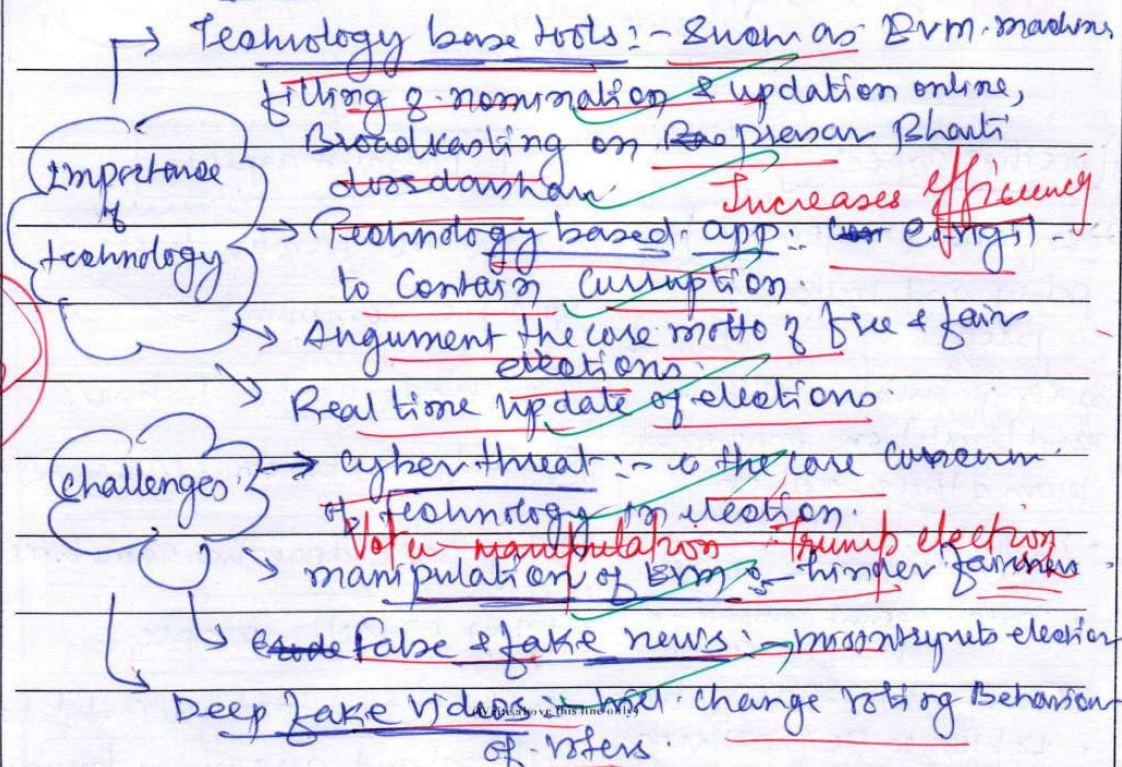 → Technology base tools :- Such as EVM machines
filling of nomination & updation online,
Broadcasting on Prasar Bharti
doordarshan.
Increases efficiency
Importance
of
technology
→ Technology based app: cVigil
to Contain Curruption
→ Angument the core motto of free & fair
elections.
→ Real time update of elections
Challenges
→ Cyber threat :- is the core concern
of technology in election.
Voter manipulation Trump election
→ manipulation of EVM :- hinder fairness.
→ false & fake news :- election
Deep fake videos :- change voting Behaviour
of voters.